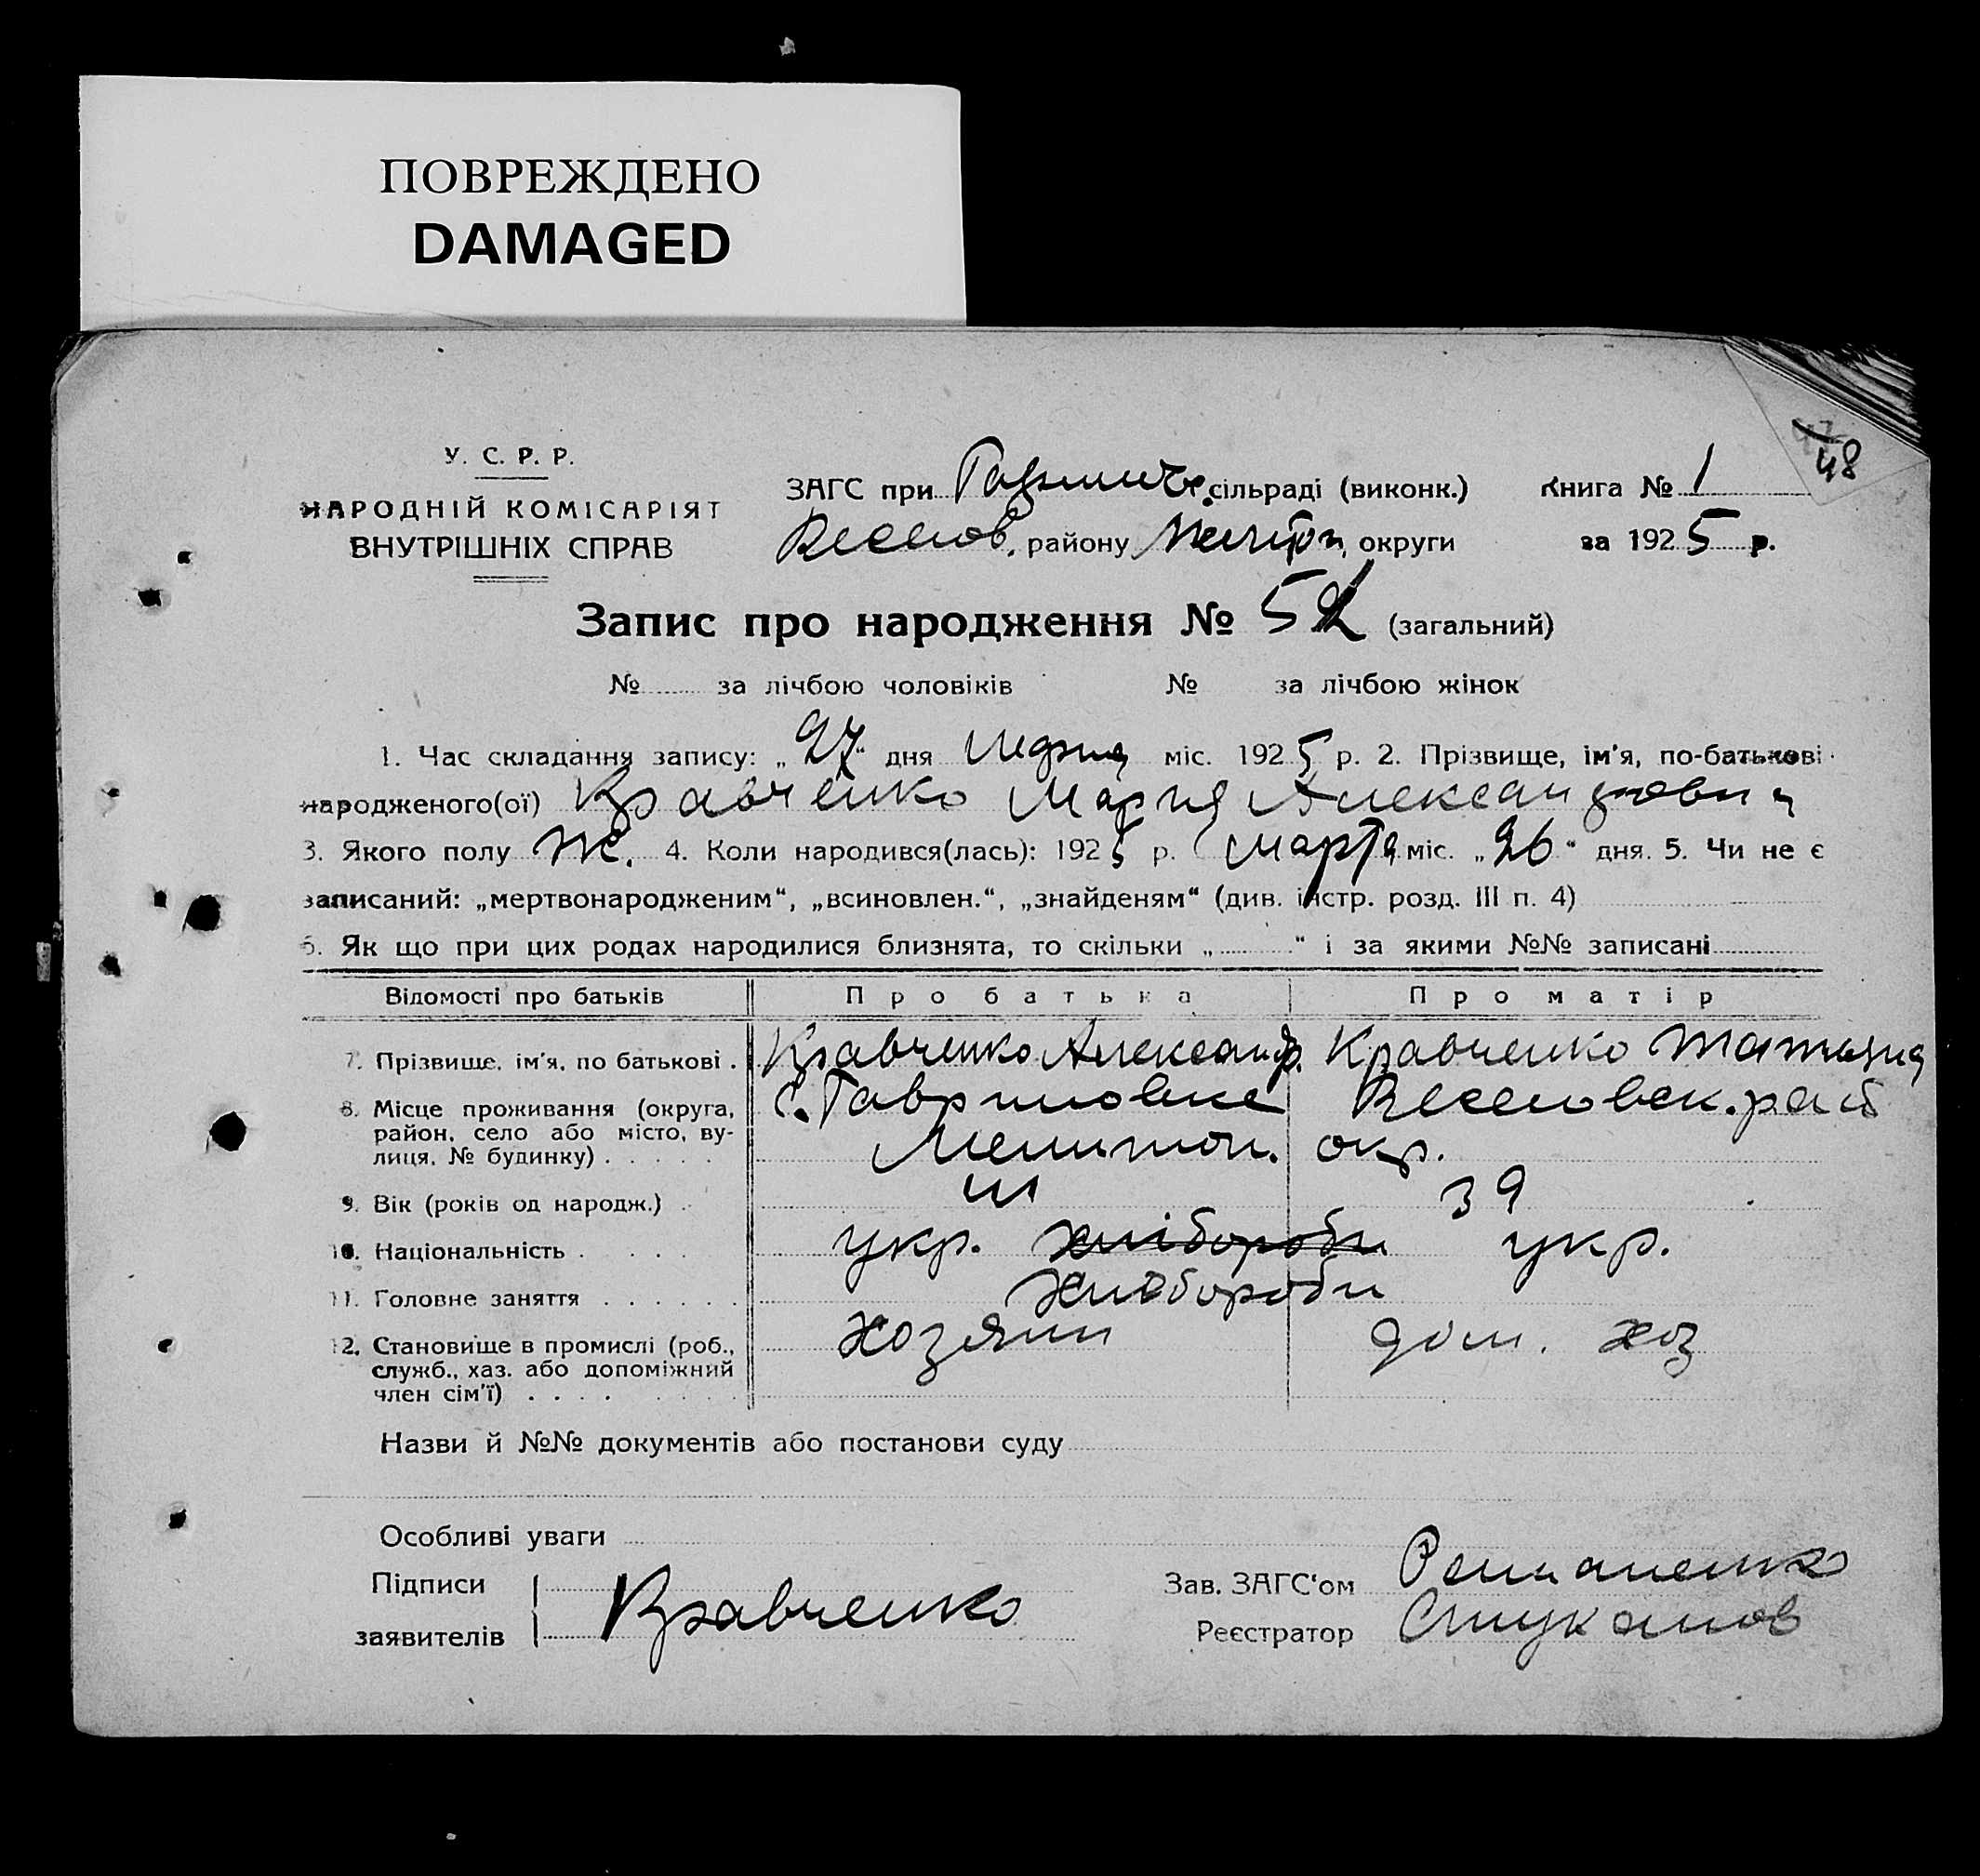 ПОВРЕЖДЕНО
DAMAGED
48
У. С. Р. Р.
НАРОДНІЙ КОМІСАРІЯТ
ВНУТРІШНІХ СПРАВ
ЗАГС при сільраді (виконк.) Книга № 1
Веселов. району Меліт. округи за 1925 р.
Запис про народження № 52 (загальний)
№ за лічбою чоловіків № за лічбою жінок
1. Час складання запису: „27“ дня міс. 1925 р. 2. Прізвище, ім'я, по-батькові
народженого(ої) Кравченко Мария Александровна
3. Якого полу ж. 4. Коли народився(лась): 1925 р. марта міс. „26“ дня. 5. Чи не є
записаний: „мертвонародженим“, „всиновлен.“, „знайденям“ (див. інстр. розд. III п. 4)
6. Як що при цих родах народилися близнята, то скільки „ “ і за якими №№ записані
Відомості про батьків Про батька Про матір
7. Прізвище, ім'я, по батькові . Кравченко Александр. Кравченко Татьяна
8. Місце проживання (округа, с. Гавриловке Веселовск. рай
район, село або місто, ву-
лиця, № будинку) . . . . . Мелитоп. окр.
9. Вік (років од народж.) . 41 39
10. Національність . . . . укр. хлібороби укр.
11. Головне заняття . . . . . . хлібороби
12. Становище в промислі (роб., хозяин дом. хоз
служб., хаз. або допоміжний
член сім'ї) . . . . . . . .
Назви й №№ документів або постанови суду
Особливі уваги
Підписи Зав. ЗАГС'ом
Кравченко
заявителів Реєстратор